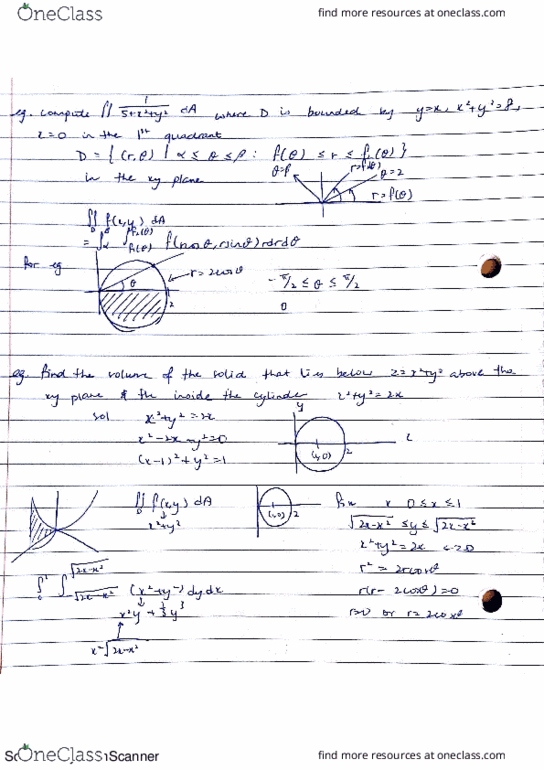 OneClass
find more resources at oneclass.com
eg. compute ∬ 1/(5+x²+y²) dA where D is bounded by y=x, x²+y²=8,
x=0 in the 1st quadrant
D = { (r,θ) | α ≤ θ ≤ β : f(θ) ≤ r ≤ f₂(θ) }
in the xy plane
θ=β
θ=2
r=f(θ)
∬ f(x,y) dA
D
= ∫ ∫ f(rcosθ, rsinθ) rdrdθ
for eg
θ
r=2cosθ
2
-π/2 ≤ θ ≤ π/2
0
eg. find the volume of the solid that lies below z=x²+y² above the
xy plane & the inside the cylinder x²+y²=2x
sol
x²+y²=2x
x²-2x+y²=0
(x-1)²+y²=1
y
(1,0)
2
∬ f(x,y) dA
x²+y²
(1,0)
2
x 0≤x≤1
√2x-x² ≤y≤ √2x-x²
x²+y²=2x
r²=2rcosθ
r(r-2cosθ)=0
r=0 or r=2cosθ
∫ ∫ (x²+y²) dydx
√2x-x²
-√2x-x²
x²y + ⅓y³
x²√2x-x²
Scanner
find more resources at oneclass.com